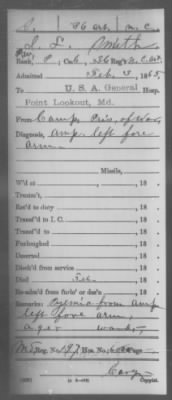 S. 36 Art. N.C.
S. L. Smith
Rank, P, Co. 36 Reg't N.C. Art.
Admitted Feb. 3, 1865,
To U. S. A. General Hosp.
Point Lookout, Md.
From Camp Pris. of War,
Diagnosis, Amp. left fore
arm.
Missile,
W'd at , 18 .
Treatm't,
Ret'd to duty , 18 .
Transf'd to I. C. , 18 .
Transf'd to , 18 .
Furloughed , 18 .
Deserted , 18 .
Disch'd from service , 18 .
Died Feb. , 18 .
Re-adm'd from furlo' or des'n , 18 .
Remarks: Pyemia from amp
left fore arm,
age
Md. Reg. No. Hos. No. Page
Copyist.